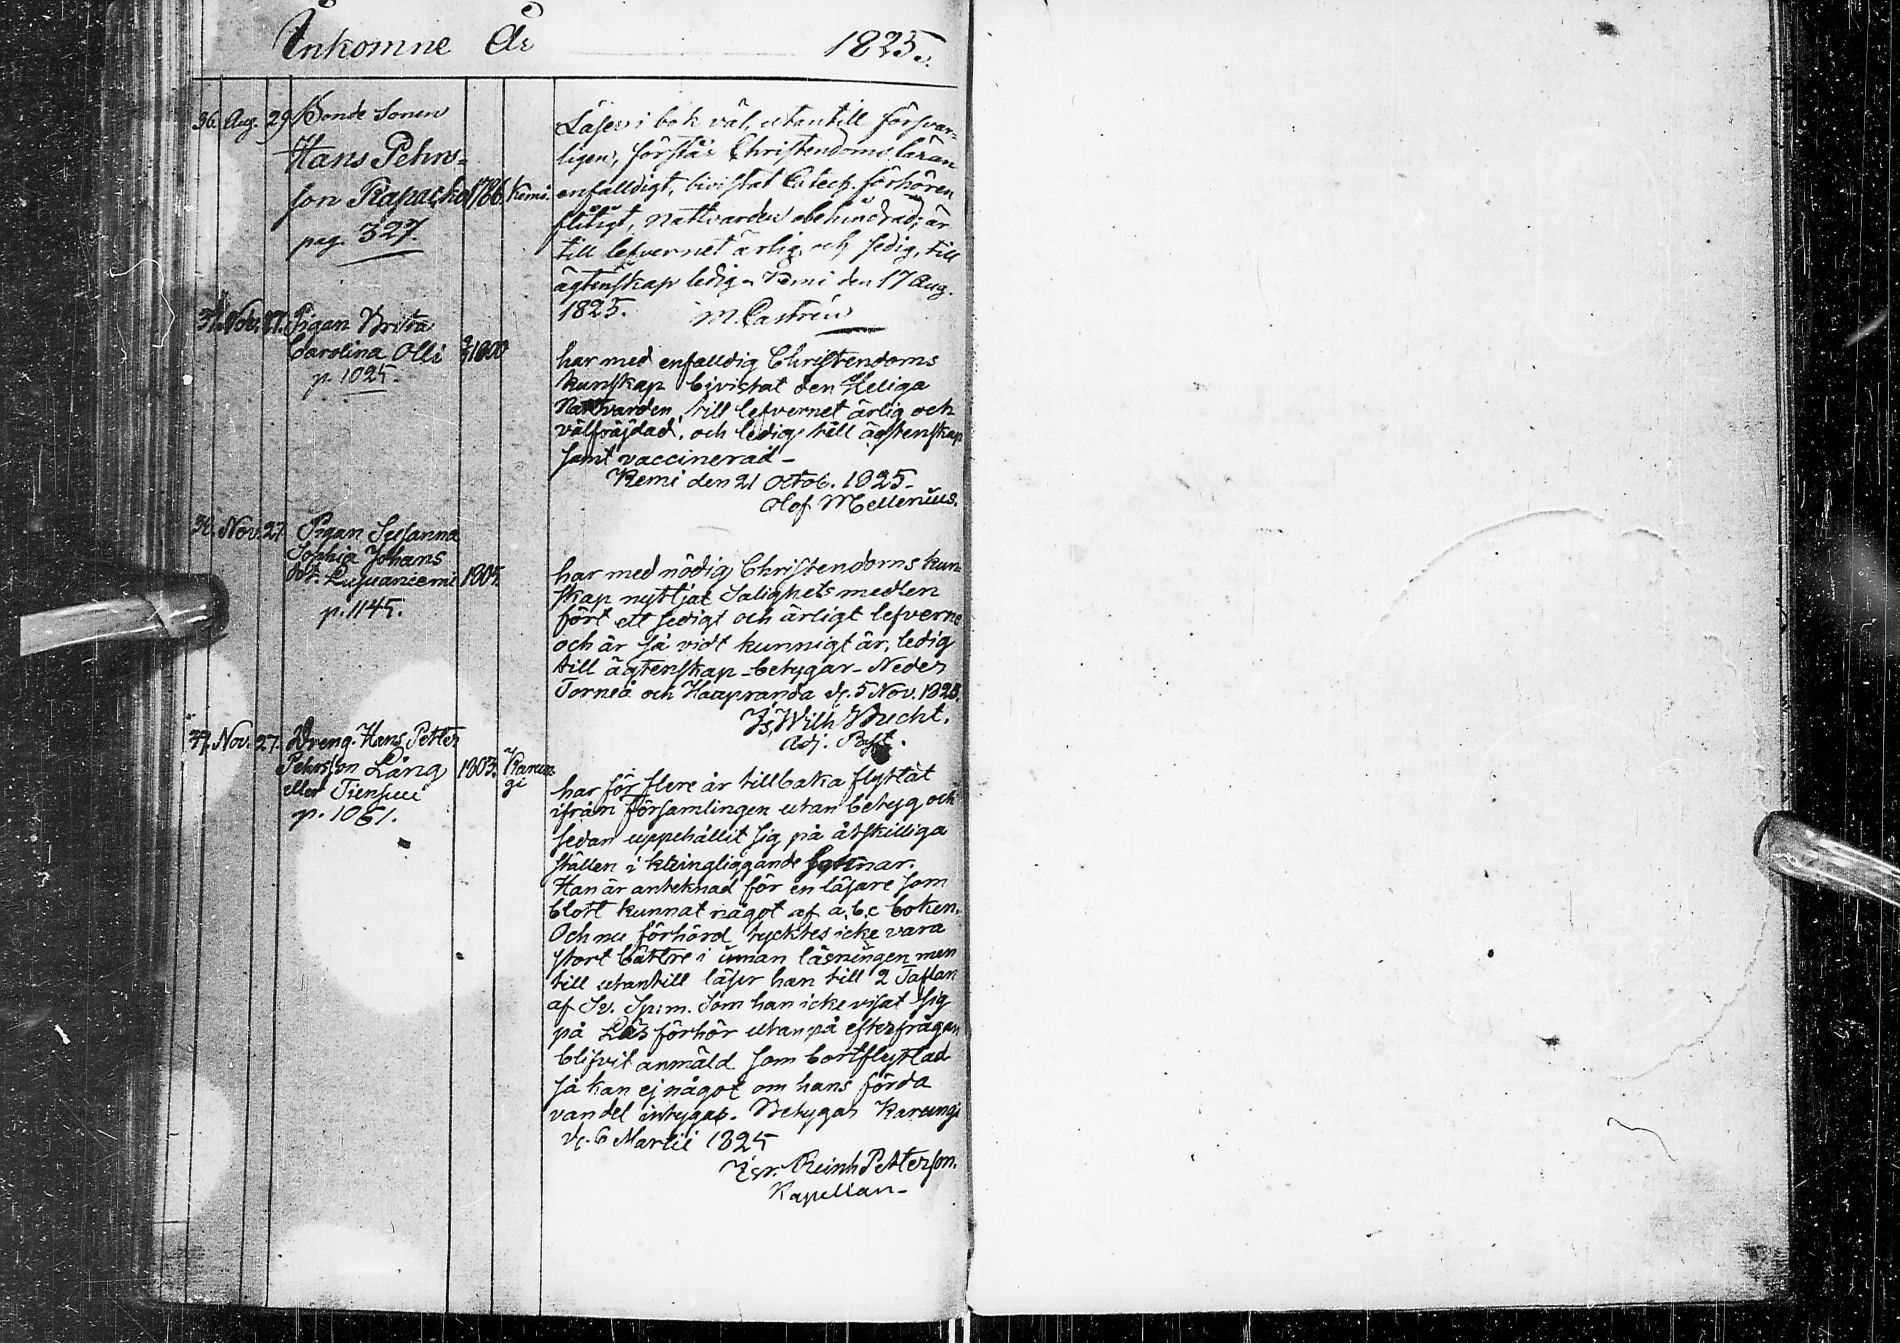 Inkomne År 1825.
36. Aug. 29 Bonde Sonen
Hans Pehrs-
son Rapucko 1786. Kemi.
pag. 327.
Läser i bok väl, utantill försvar-
ligen, förstår Christendoms läran
enfalldigt, bivistat Catech. förhören
flitigt, Nattvarden obehindrad; är
till lefvernet ärlig och sedig, till
ägtenskap ledig. Kemi den 17 Aug.
1825. M. Castrén
37. Nov. 27. Pigan Brita
Carolina Olli 1800
p. 1025.
har med enfalldig Christendoms
kunskap bivistat den Heliga
Nattvarden, till lefvernet ärlig och
välfräjdad, och ledig till ägtenskap
samt vaccinerad
Kemi den 21 Octob. 1825.
Olof Mellenius.
38. Nov. 27 Pigan Susanna
Sophia Johans
dot. 1805.
p. 1145.
har med nödig Christendoms kun-
skap nyttjat Salighets medlen
fört ett sedigt och ärligt lefverne
och är så vidt kunnigt är, ledig
till ägtenskap betygar Neder
Torneå och Haapranda d. 5 Nov. 1825.
Js. Wilh. Brecht.
Adj. Past.
39. Nov. 27. Dreng. Hans Petter
Pehrsson Lång 1803. Karun-
gi
eller Tiensuu
p. 1061.
har för flere år tillbaka flyttat
ifrån Församlingen utan betyg och
sedan uppehållit sig på åtskilliga
ställen i kringliggande Socknar.
Han är anteknad för en läsare som
blott kunnat något af a, b, c boken.
Och nu förhörd tycktes icke vara
stort bättre i innan läsningen men
till utantill läser han till 2 Taflan
af Sv. Sp: m. Som han icke visat sig
på Läs förhör utan på efterfrågan
blifvit anmäld som bortflyttad
så kan ej något om hans förda
vandel intygas. Betygas Karungi
d. 6 Martii 1825
Isr. Reinh Petterson.
Kapellan